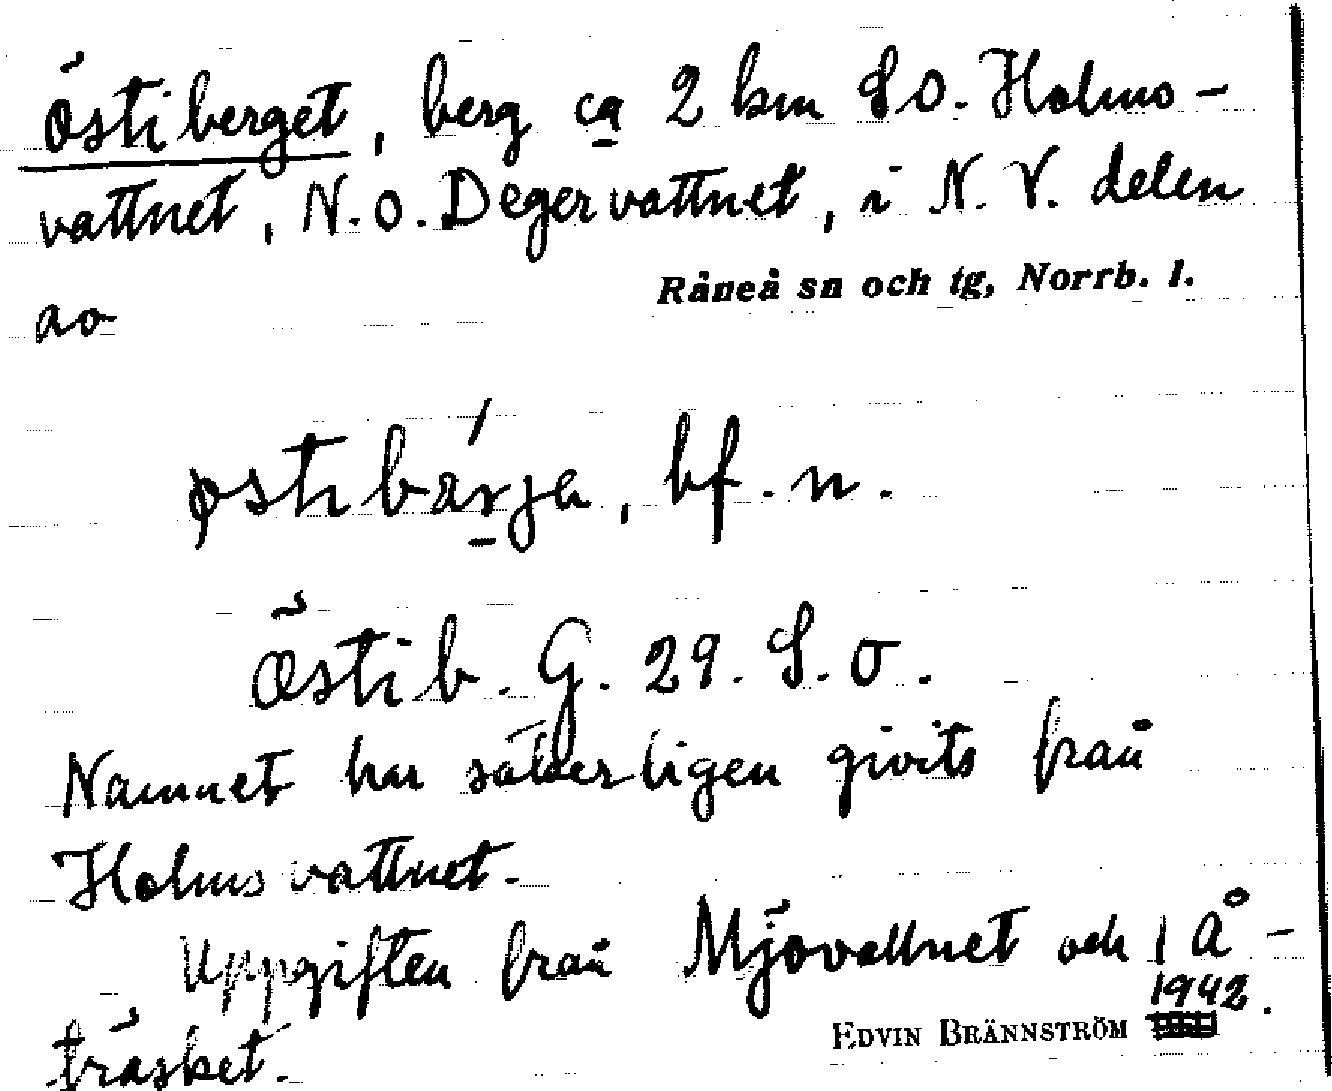 Östiberget, berg ca 2 km S.O. Holms-
vattnet, N.O. Degervattnet, i N.V. delen
av
Råneå sn och tg, Norrb. l.
østibärja, bf. n.
Östib. G. 29. S.O.
Namnet har säkerligen givits från
Holmsvattnet.
Uppgiften från Mjövattnet och Å-
träsket.
EDVIN BRÄNNSTRÖM 1942.